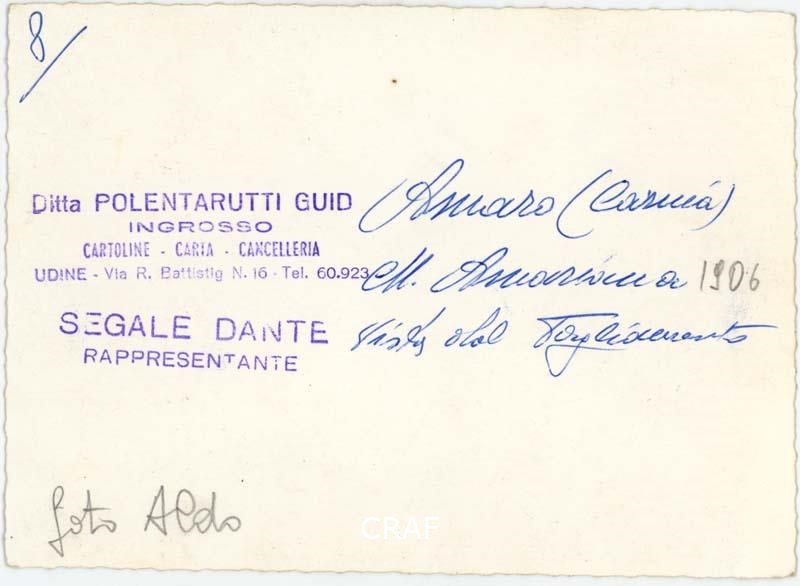 8/
Ditta POLENTARUTTI GUID
INGROSSO
CARTOLINE - CARTA - CANCELLERIA
UDINE - Via R. Battistig N. 16 - Tel. 60.923
SEGALE DANTE
RAPPRESENTANTE
Amaro (Carnia)
M. Amariana 1906
Vista dal Tagliamento
foto Aldo
CRAF